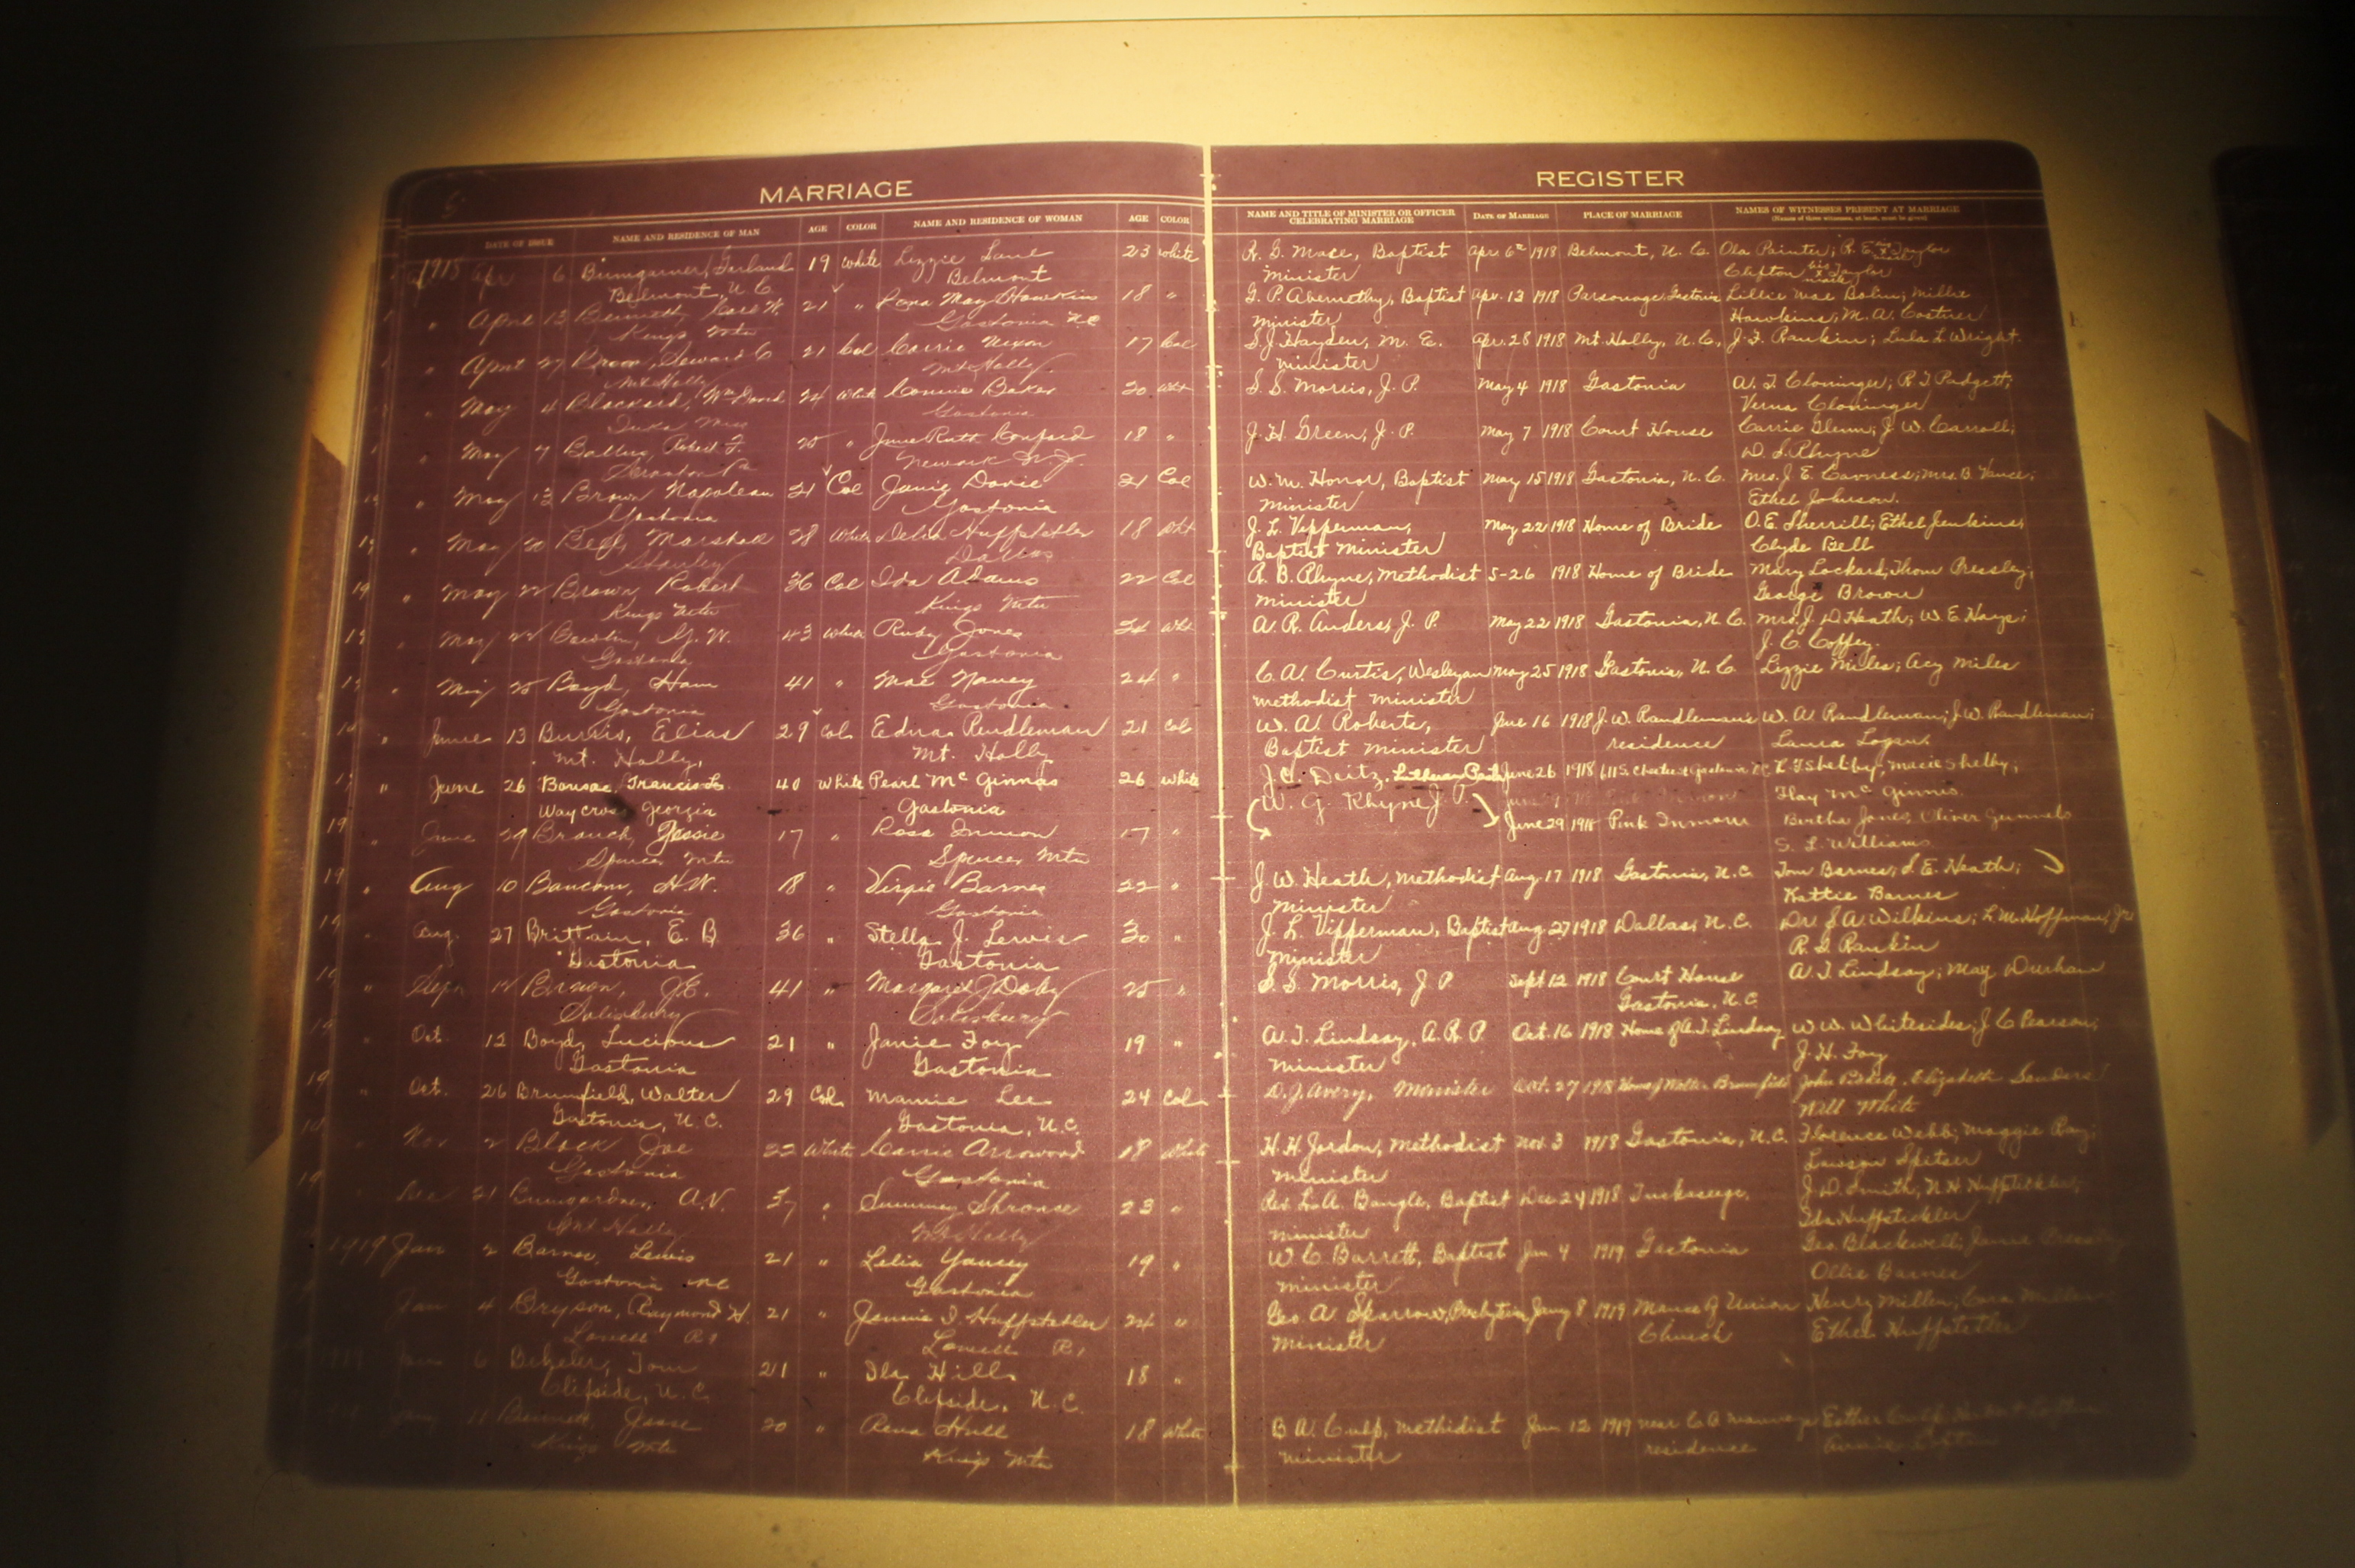 MARRIAGE
REGISTER
DATE OF ISSUE NAME AND RESIDENCE OF MAN AGE COLOR NAME AND RESIDENCE OF WOMAN AGE COLOR
NAME AND TITLE OF MINISTER OR OFFICER CELEBRATING MARRIAGE DATE OF MARRIAGE PLACE OF MARRIAGE NAMES OF WITNESSES PRESENT AT MARRIAGE
1918 Apr 6 Bumgarner, Garland 19 White Lizzie Lane 23 white Baptist Apr 6th 1918 Belmont, N.C. Ola Painter; R. E. his x mark Taylor
Belmont, N.C. Belmont Minister Clifton his x mark Taylor
" April 13 Bennett, 21 " May Hawkins 18 " G. P. Abernethy, Baptist Apr. 13 1918 Parsonage, Gastonia Lillie Mae Bolin; Millie
Kings Mtn Gastonia N.C. Minister Hawkins; M. A. Costner
" April 27 21 Col Carrie Nixon 17 Col S. J. Hayden, M. E. Apr. 28 1918 Mt. Holly, N.C. J. F. Rankin; Lula L. Wright.
Mt Holly Mt Holly minister
" May 4 Blackard, Wm David 24 White Connie Baker 20 Wht S. S. Morris, J. P. May 4 1918 Gastonia A. T. Cloninger; R. T. Padgett;
Gastonia Verna Cloninger
" May 7 Robert F. 25 " June Ruth 18 " J. H. Green, J. P. May 7 1918 Court House Carrie Glenn; J. W. Carroll;
Scranton Pa Newark N.J. D. L. Rhyne
" May 13 Brown Napoleon 21 Col Janie Davie 21 Col W. M. Honor, Baptist May 15 1918 Gastonia, N.C. Mrs. J. E. Carness; Mrs. B. Vance;
Gastonia Gastonia Minister Ethel Johnson.
" May 20 Marshall 28 White Delia Huffstetler 18 Wht J. L. Vipperman, May 22 1918 Home of Bride O. E. Sherrill; Ethel Jenkins;
Stanley Dallas Baptist Minister Clyde Bell
" May 22 Brown, Robert 36 Col Ida Adams 22 Col A. B. Rhyne, Methodist 5-26 1918 Home of Bride Mary Lockard; Thom Pressley;
Kings Mtn Kings Mtn minister George Brown
" May 22 G. W. 43 White Ruby Jones 24 Wht A. R. Anders, J. P. May 22 1918 Gastonia, N.C. Mrs. J. D. Heath; W. E. Hays;
Gastonia Gastonia J. C. Coffey.
" May 25 Boyd, Ham 41 " Mae Nancy 24 " C. A. Curtis, Wesleyan May 25 1918 Gastonia, N.C. Lizzie Miles; Acy Miles
Gastonia Gastonia Methodist Minister
" June 13 Burris, Elias 29 Col Edna Rendleman 21 Col W. A. Roberts, June 16 1918 J. W. Randleman's W. A. Randleman; J. W. Randleman;
Mt. Holly, Mt. Holly Baptist Minister residence Laura Logan.
" June 26 Francis 40 White Pearl McGinnas 26 white J. C. Deitz, Lutheran June 26 1918 Gastonia L. F. Shelby, Macie Shelby,
Way cross Georgia Gastonia W. G. Rhyne J. P. Flay McGinnis.
" June 29 Branch, Jessie 17 " Rosa Inmon 17 " June 29 1918 Pink Inmon Bertha Jones, Oliver Gunnels
Spencer Mtn Spencer Mtn S. L. Williams
" Aug 10 Baucom, H.W. 18 " Virgie Barnes 22 " J. W. Heath, Methodist Aug 17 1918 Gastonia, N.C. Tom Barnes; S. E. Heath;
Gastonia Gastonia Minister Hattie Barnes
" Aug. 27 Brittain, E. B. 36 " Stella J. Lewis 30 " J. L. Vipperman, Baptist Aug 27 1918 Dallas, N.C. Dr. S. A. Wilkins; L. M. Hoffman, Jr
Gastonia Gastonia Minister R. G. Rankin
" Sept 12 J.E. 41 " Margaret J Doby 25 " S. S. Morris, J. P. Sept 12 1918 Court House A. T. Lindsay; May Durham
Salisbury Salisbury Gastonia, N.C.
" Oct. 12 Boyd, Lucious 21 " Janie Foy 19 " A. T. Lindsay, A. R. P. Oct. 16 1918 Home of A. T. Lindsay W. W. Whitesides; J. C. Pearson;
Gastonia Gastonia Minister J. H. Foy
" Oct. 26 Brumfield, Walter 29 Col. Mamie Lee 24 Col. D. J. Avery, Minister Oct. 27 1918 Home of Walter Brumfield John Elizabeth Sanders
Gastonia, N.C. Gastonia, N.C. Will White
Nov 2 Black Joe 22 White Carrie Arrowood 18 White H. H. Jordon, Methodist Nov. 3 1918 Gastonia, N.C. Florence Webb; Maggie Ray;
Gastonia Gastonia Minister Lawson Spitser
Dec 21 Bumgardner, A.V. 37 " Shronce 23 " Rev. L. A. Bangle, Baptist Dec 24 1918 Tuckaseege. J. D. Smith, N. H. Huffstickler;
Mt Holly Mt Holly minister Ida Huffstickler
1919 Jan 2 Barnes, Lewis 21 " Lelia Yancey 19 " W. C. Barrett, Baptist Jan. 4 1919 Gastonia Geo. Blackwell;
Gastonia NC Gastonia minister Ollie Barnes
Jan 4 Bryson, Raymond H. 21 " Jennie I. Huffstetler 24 " Geo. A. Sparrow, Jany 8 1919 Manse of Union Church Henry Millen,
Lowell R1 Lowell R1 Minister Ethel Huffstetler
Jan 6 Tom 21 " Ila Hills 18 "
Clifside, N.C. Clifside, N.C.
Jany 11 Bennett, Jesse 20 " Rena Hull 18 White B. A. Culp, Methidist Jan 12 1919 near residence Esther Culp
Kings Mtn Kings Mtn Minister